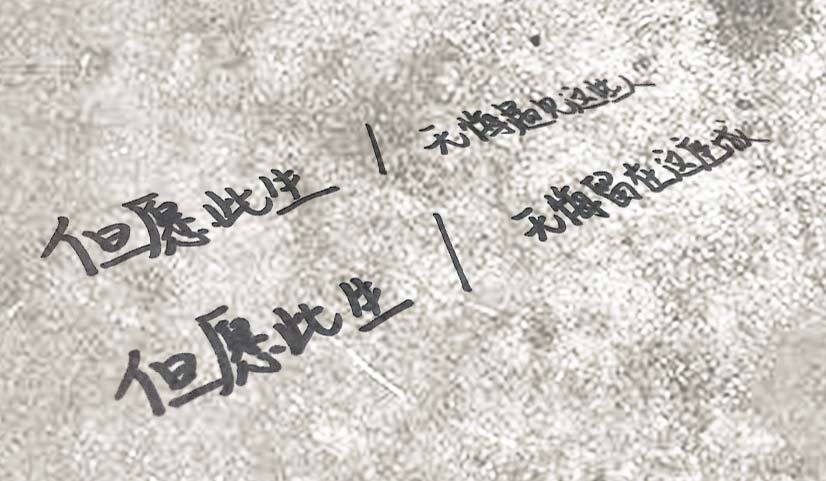 但愿此生 | 无悔遇见这些人
但愿此生 | 无悔留在这座城